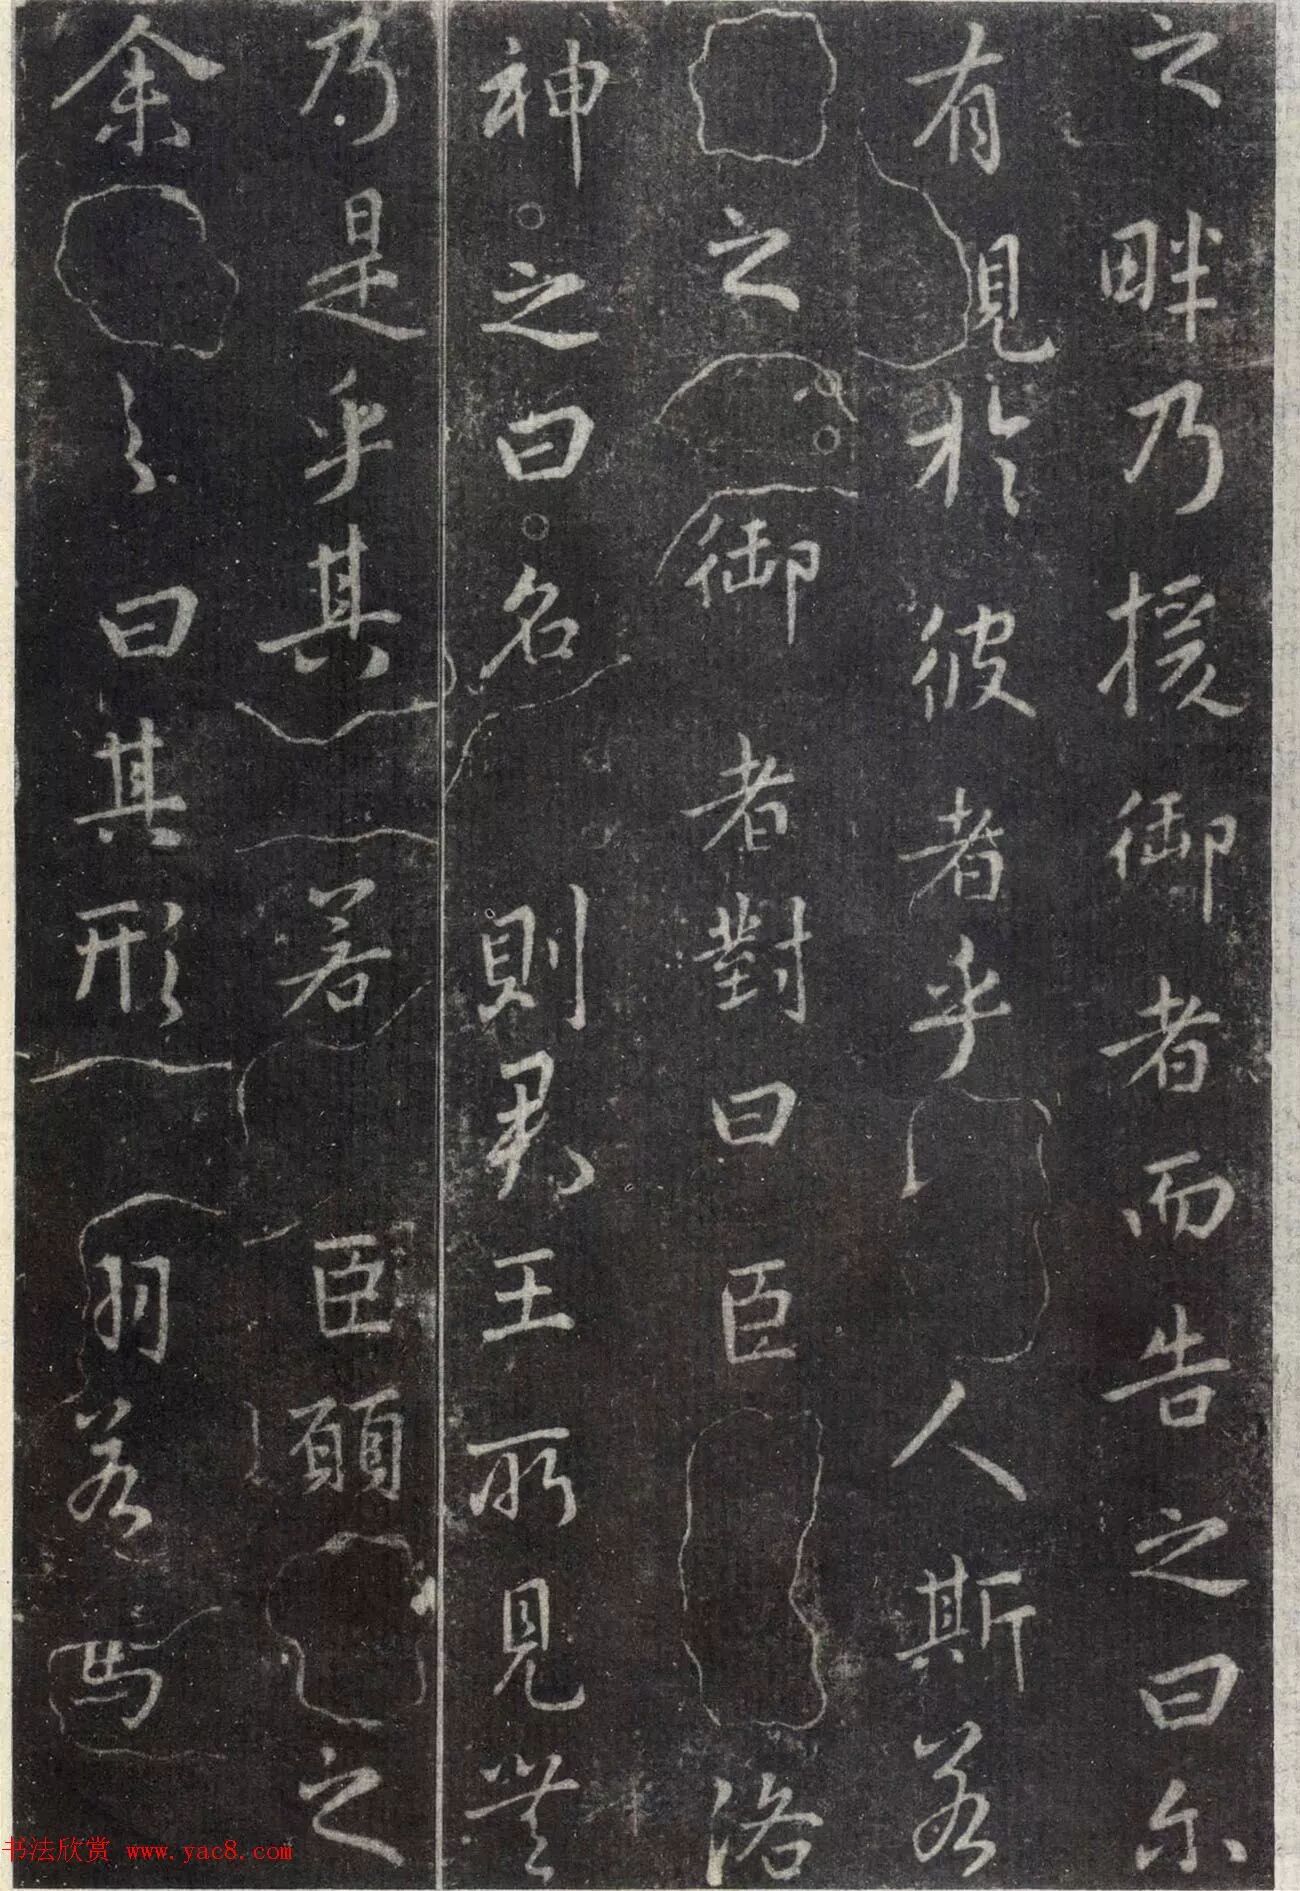 之畔乃援御者而告之曰尔
有見於彼者乎人斯若
之御者對曰臣洛
神之曰名則君王所見無
乃是乎其若臣願之
余之曰其形羽若馬
书法欣赏 www.yac8.com